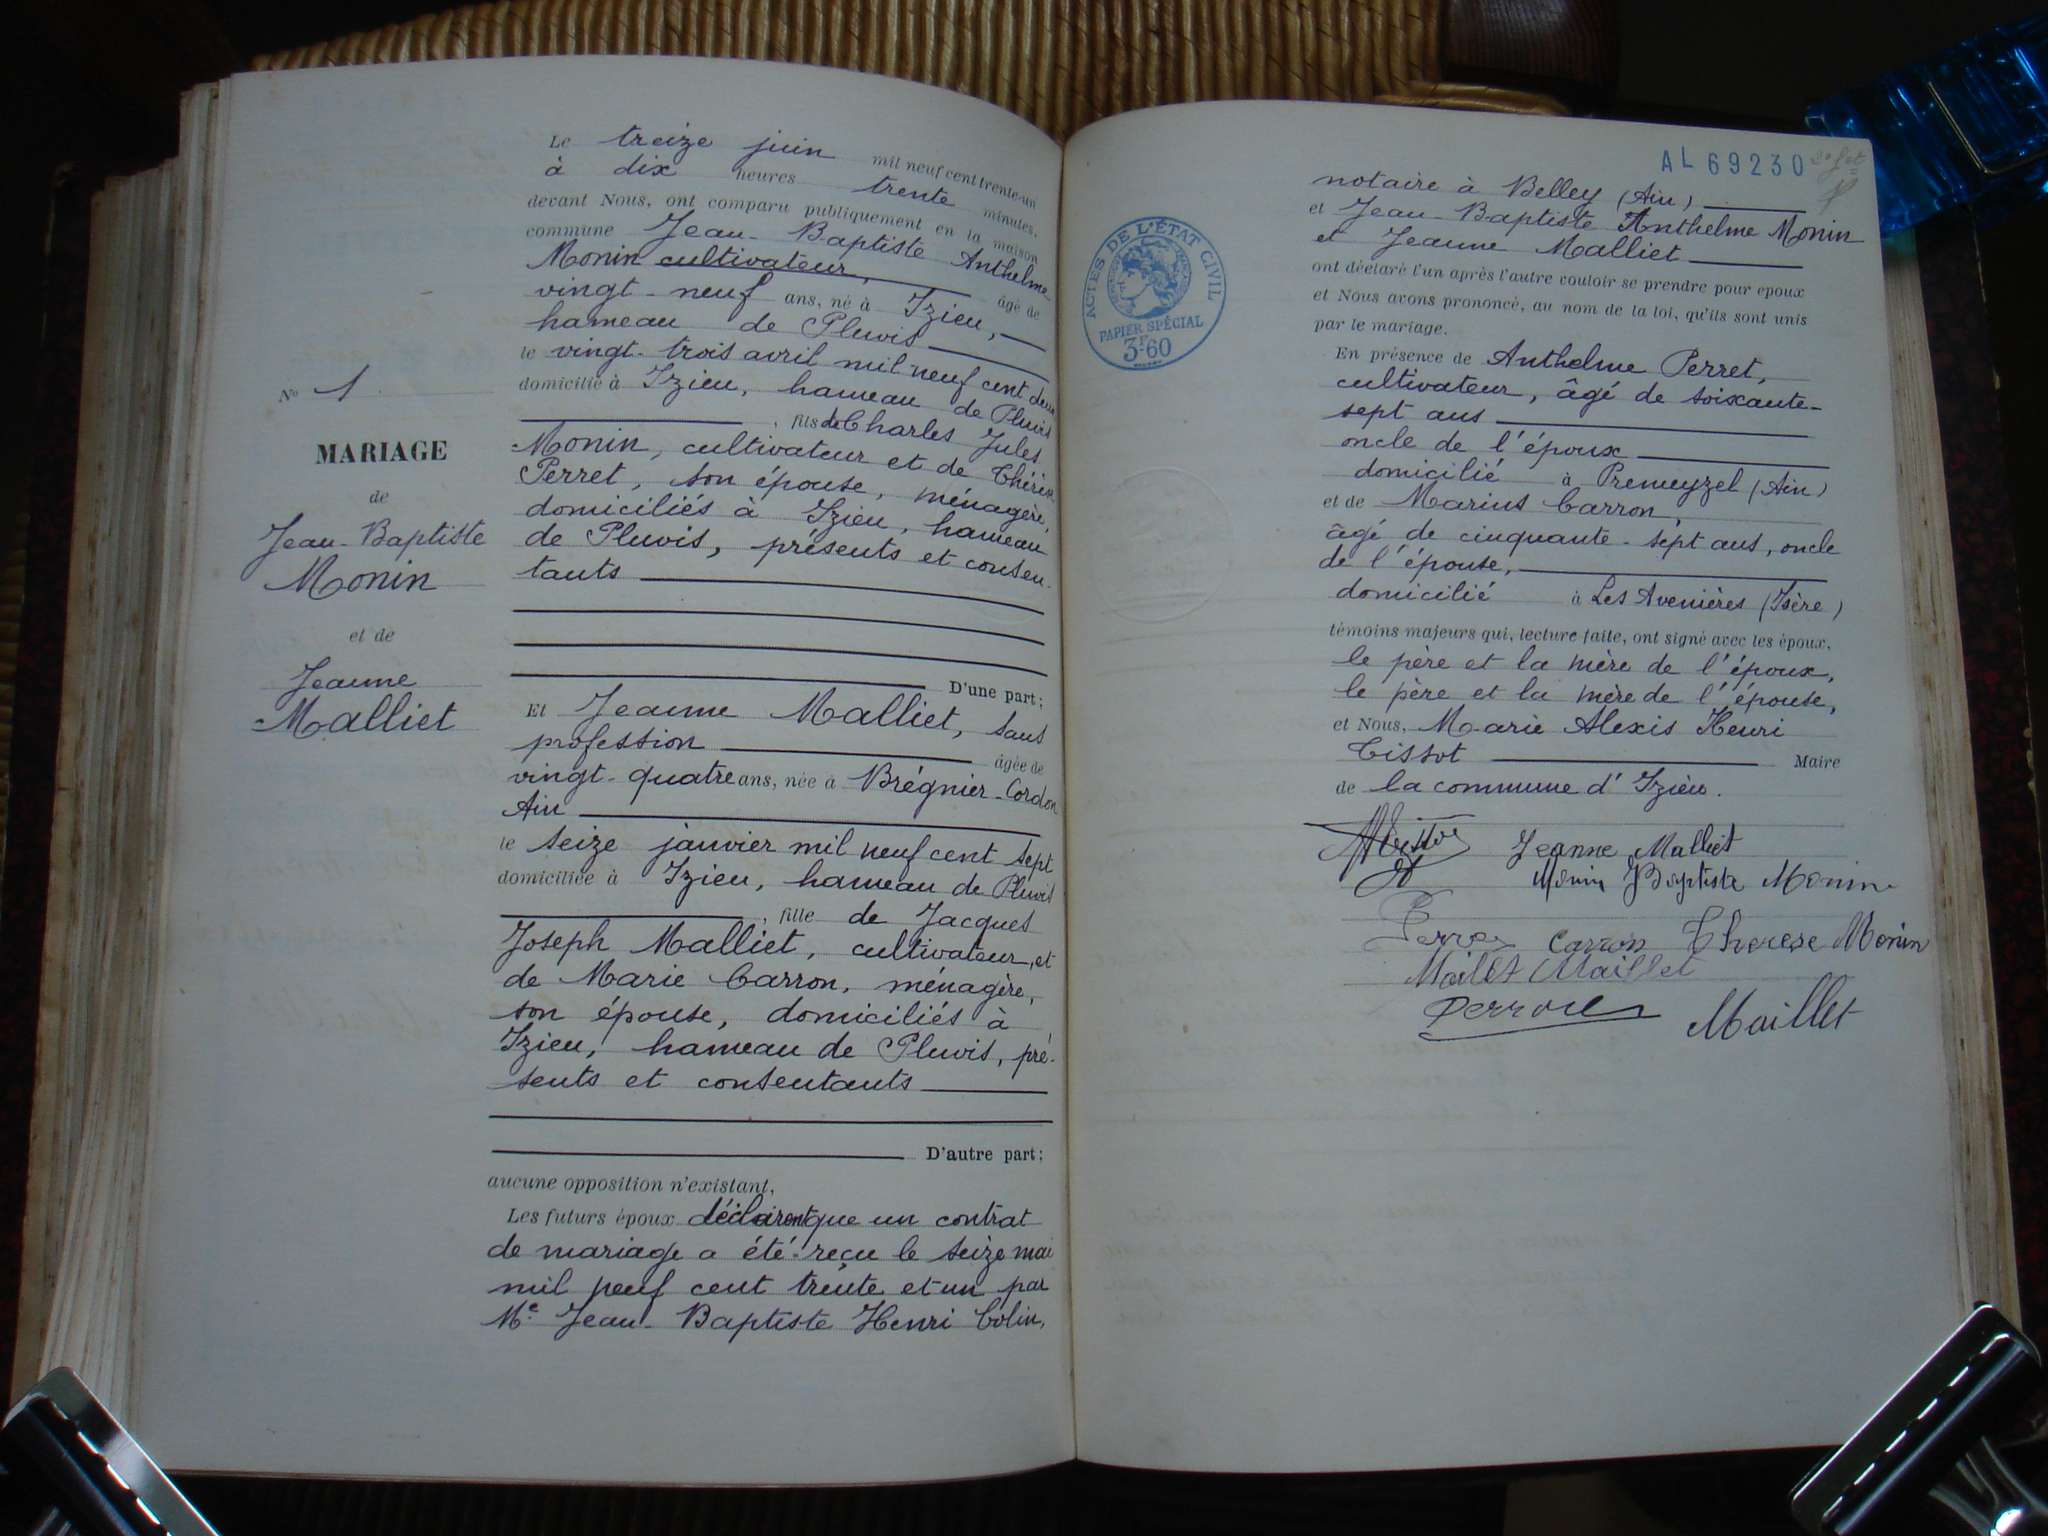 Le treize juin mil neuf cent trente-un
à dix heures trente minutes,
devant Nous, ont comparu publiquement en la maison
commune Jean-Baptiste Anthelme
Monin cultivateur, âgé de
vingt-neuf ans, né à Izieu,
hameau de Pluvis
le vingt-trois avril mil neuf cent deux
domicilié à Izieu, hameau de Pluvis
, fils de Charles Jules
Monin, cultivateur et de Thérèse
Perret, son épouse, ménagère,
domiciliés à Izieu, hameau
de Pluvis, présents et consen-
tants
D'une part;
Et Jeanne Malliet, sans
profession âgée de
vingt-quatre ans, née à Brégnier-Cordon
Ain
le seize janvier mil neuf cent sept
domiciliée à Izieu, hameau de Pluvis
, fille de Jacques
Joseph Malliet, cultivateur, et
de Marie Carron, ménagère,
son épouse, domiciliés à
Izieu, hameau de Pluvis, pré-
sents et consentants
D'autre part;
aucune opposition n'existant,
Les futurs époux déclarent que un contrat
de mariage a été reçu le seize mai
mil neuf cent trente et un par
Me Jean-Baptiste Henri Colin,
No 1
MARIAGE
de
Jean-Baptiste
Monin
et de
Jeanne
Malliet
AL 69230
ACTES DE L'ÉTAT CIVIL
PAPIER SPÉCIAL
3F.60
notaire à Belley (Ain)
et Jean-Baptiste Anthelme Monin
et Jeanne Malliet
ont déclaré l'un après l'autre vouloir se prendre pour époux
et Nous avons prononcé, au nom de la loi, qu'ils sont unis
par le mariage.
En présence de Anthelme Perret,
cultivateur, âgé de soixante-
sept ans
oncle de l'époux
domicilié à Premeyzel (Ain)
et de Marius Carron,
âgé de cinquante-sept ans, oncle
de l'épouse,
domicilié à Les Avenières (Isère)
témoins majeurs qui, lecture faite, ont signé avec les époux,
le père et la mère de l'époux,
le père et la mère de l'épouse,
et Nous, Marie Alexis Henri
Tissot Maire
de la commune d'Izieu.
Jeanne Malliet
Monin JBaptiste Monin
Carron Therese Monin
Maillet
Maillet